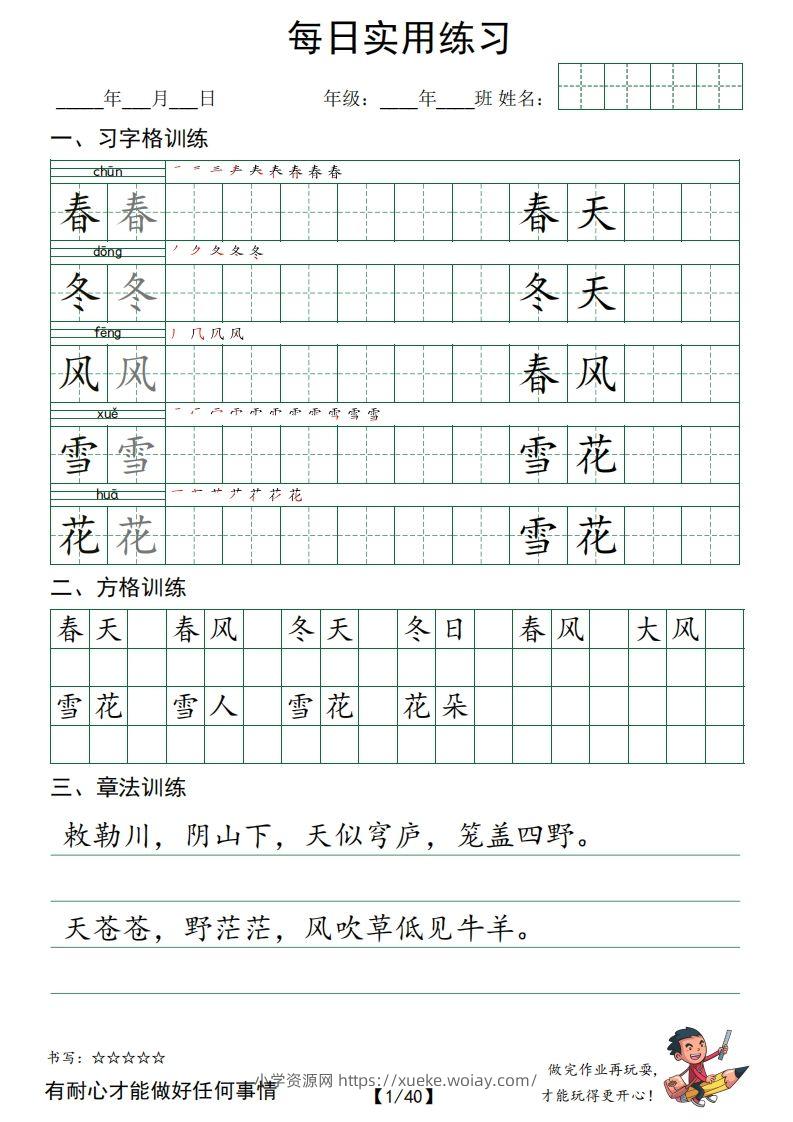 每日实用练习
_____年___月___日 年级：____年____班 姓名：
一、习字格训练
chūn
春 春 春 天
dōng
冬 冬 冬 天
fēng
风 风 春 风
xuě
雪 雪 雪 花
huā
花 花 雪 花
二、方格训练
春天 春风 冬天 冬日 春风 大风
雪花 雪人 雪花 花朵
三、章法训练
敕勒川，阴山下，天似穹庐，笼盖四野。
天苍苍，野茫茫，风吹草低见牛羊。
书写：☆☆☆☆☆
有耐心才能做好任何事情
小学资源网 https://xueke.woiay.com/
【1/40】
做完作业再玩耍，
才能玩得更开心！